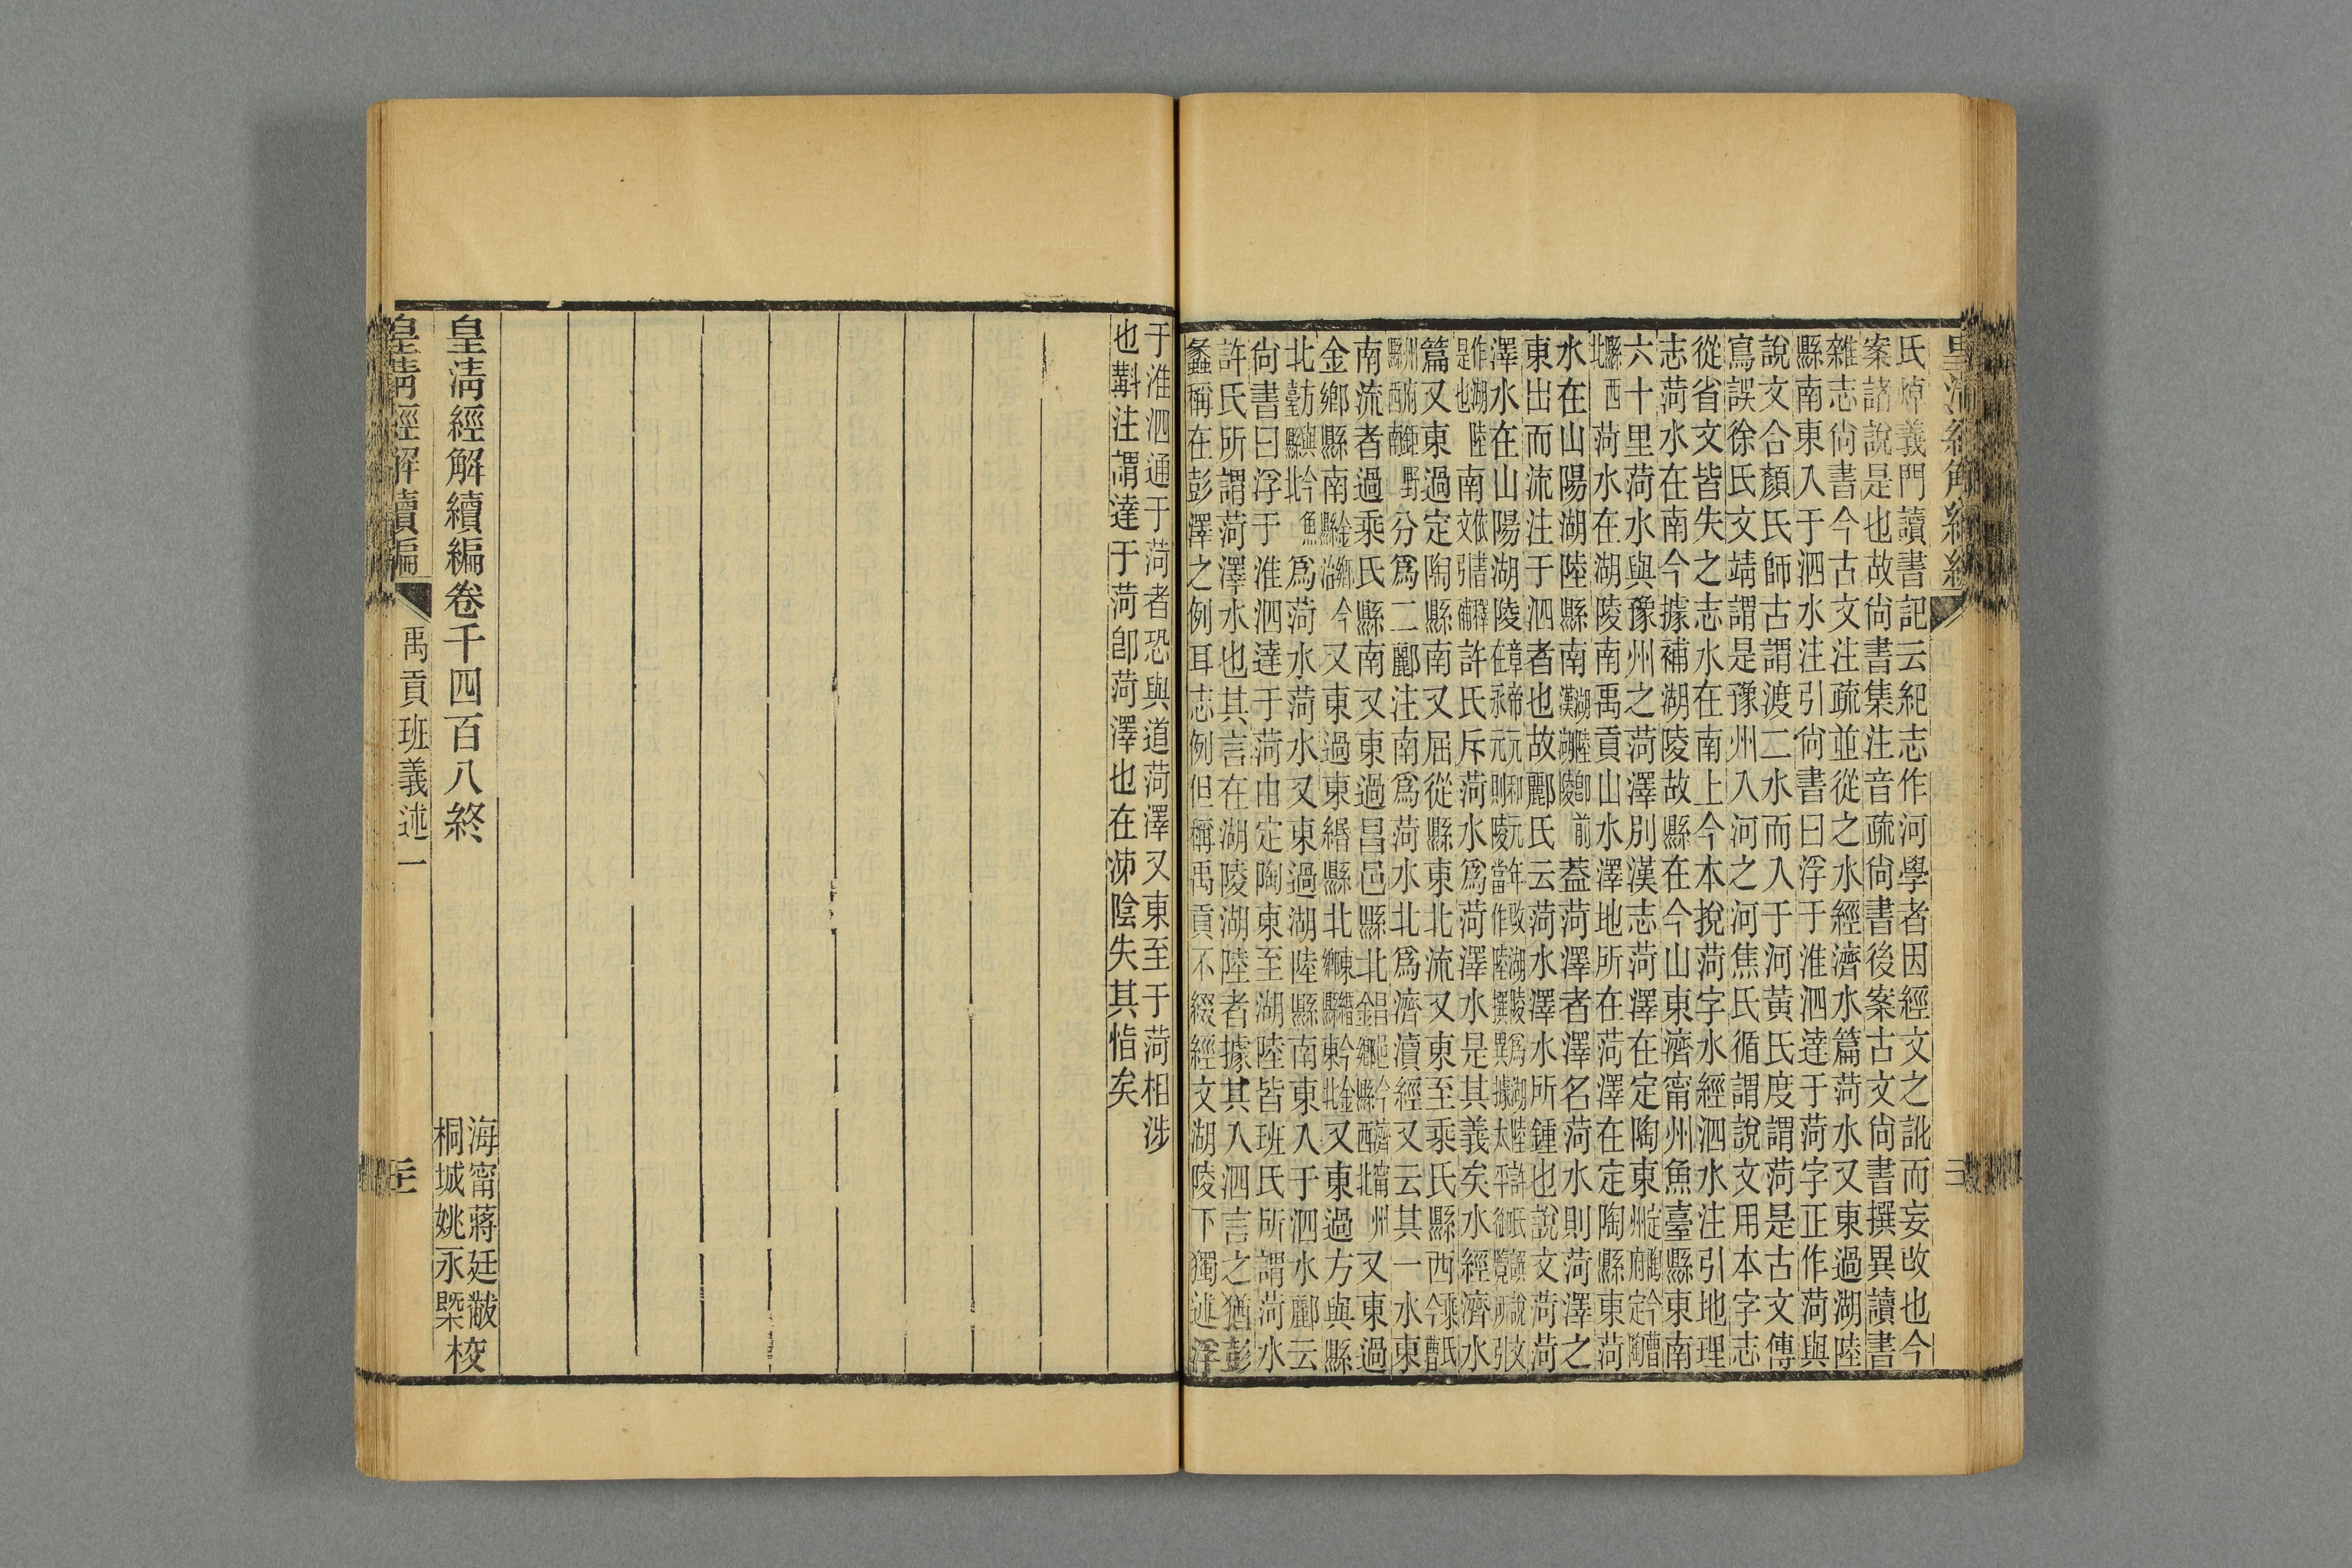 氏焯義門讀書記云紀志作河學者因經文之訛而妄改也今
案諸說是也故尚書集注音疏尚書後案古文尚書撰異讀書
雜志尚書今古文注疏並從之水經濟水篇菏水又東過湖陸
縣南東入于泗水注引尚書曰浮于淮泗達于菏字正作菏與
說文合顏氏師古謂渡二水而入于河黃氏度謂菏是古文傳
寫誤徐氏文靖謂是豫州入河之河焦氏循謂說文用本字志
從省文皆失之志水在南上今本挩菏字水經泗水注引地理
志菏水在南今據補湖陵故縣在今山東濟甯州魚臺縣東南
六十里菏水與豫州之菏澤別漢志菏澤在定陶東定陶今曹州府定陶
縣西北菏水在湖陵南禹貢山水澤地所在菏澤在定陶縣東菏
水在山陽湖陸縣南湖陸即前漢湖陵蓋菏澤者澤名菏水則菏澤之
東出而流注于泗者也故酈氏云菏水澤水所鍾也說文菏菏
澤水在山陽湖陵章帝元和元年改湖陵爲湖陸許氏說文在永元則陵當作陸撰異據太平御覽所引
作湖陸是也南依書釋文引補許氏斥菏水爲菏澤水是其義矣水經濟水
篇又東過定陶縣南又屈從縣東北流又東至乘氏縣西乘氏今曹
州府鉅野縣西南分爲二酈注南爲菏水北爲濟瀆經又云其一水東
南流者過乘氏縣南又東過昌邑縣北昌邑今濟甯州金鄉縣西北又東過
金鄉縣南金鄉今縣治又東過東緡縣北東緡今金鄉縣東北又東過方與縣
北方與今魚臺縣北爲菏水菏水又東過湖陸縣南東入于泗水酈云
尚書曰浮于淮泗達于菏由定陶東至湖陸皆班氏所謂菏水
許氏所謂菏澤水也其言在湖陵湖陸者據其入泗言之猶彭
蠡稱在彭澤之例耳志例但稱禹貢不綴經文湖陵下獨述浮
于淮泗通于菏者恐與道菏澤又東至于菏相涉
也斠注謂達于菏卽菏澤也在泲陰失其恉矣
皇淸經解續編卷千四百八終
海甯蔣廷黻
桐城姚永槩校
皇淸經解續編
禹貢班義述一